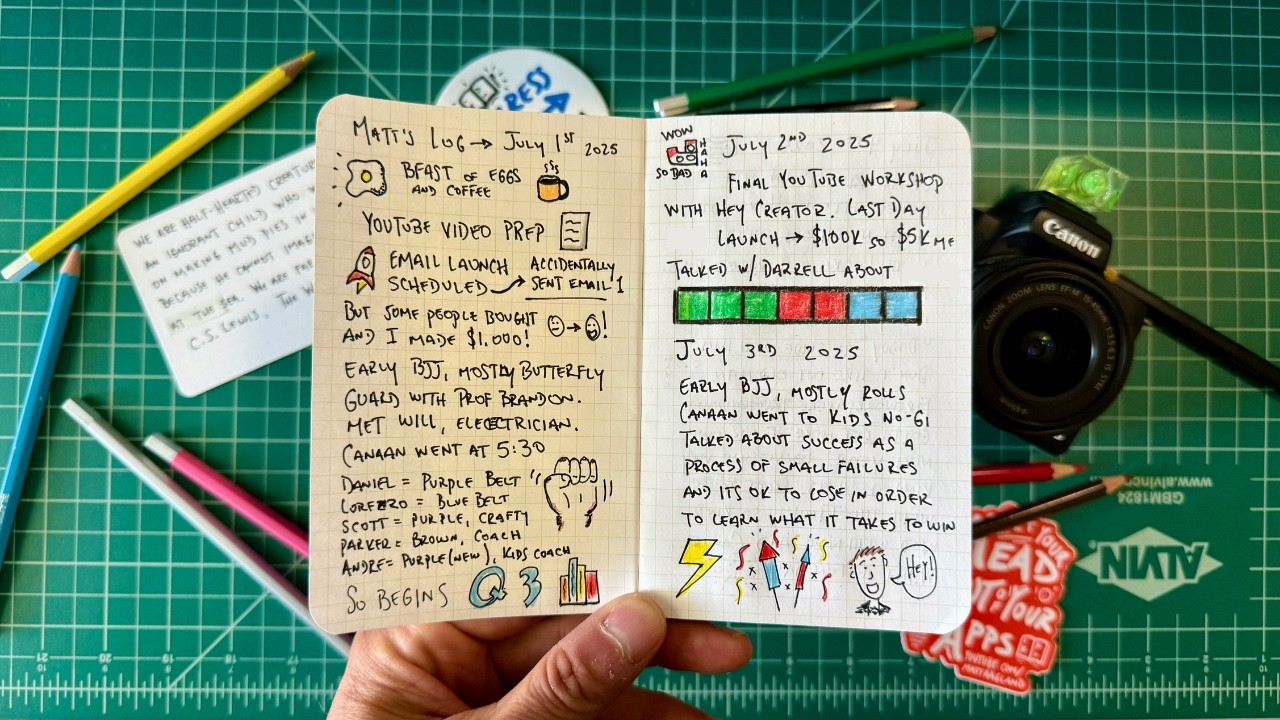 MATT'S LOG → JULY 1ST 2025
BFAST OF EGGS
AND COFFEE
YOUTUBE VIDEO PREP
EMAIL LAUNCH
SCHEDULED
ACCIDENTALLY
SENT EMAIL 1
BUT SOME PEOPLE BOUGHT
AND I MADE $1,000!
EARLY BJJ, MOSTLY BUTTERFLY
GUARD WITH PROF BRANDON.
MET WILL, ELECTRICIAN.
CANAAN WENT AT 5:30
DANIEL = PURPLE BELT
LORENZO = BLUE BELT
SCOTT = PURPLE, CRAFTY
PARKER = BROWN, COACH
ANDRE = PURPLE (NEW), KIDS COACH
SO BEGINS Q3
WOW
HAHA
SO BAD
JULY 2ND 2025
FINAL YOUTUBE WORKSHOP
WITH HEY CREATOR. LAST DAY
LAUNCH → $100K SO $5K ME
TALKED W/ DARRELL ABOUT
JULY 3RD 2025
EARLY BJJ, MOSTLY ROLLS
CANAAN WENT TO KIDS NO-GI
TALKED ABOUT SUCCESS AS A
PROCESS OF SMALL FAILURES
AND ITS OK TO LOSE IN ORDER
TO LEARN WHAT IT TAKES TO WIN
HEY!
WE ARE HALF-HEARTED CREATUR
AN IGNORANT CHILD WHO
ON MAKING MUD PIES IN
BECAUSE HE CANNOT IMAG
AT THE SEA. WE ARE FAR
C.S. LEWIS, THE W
RESS
Canon
CANON ZOOM LENS EF-M 15-45mm 1:3.5-6.3 IS STM
GBM1824
www.alvin
ALVIN
YOUR
HEAD
OUT YOUR
APPS
YOUTUBE.COM/
MATTRAGLAND
21 20 19
4 2 1